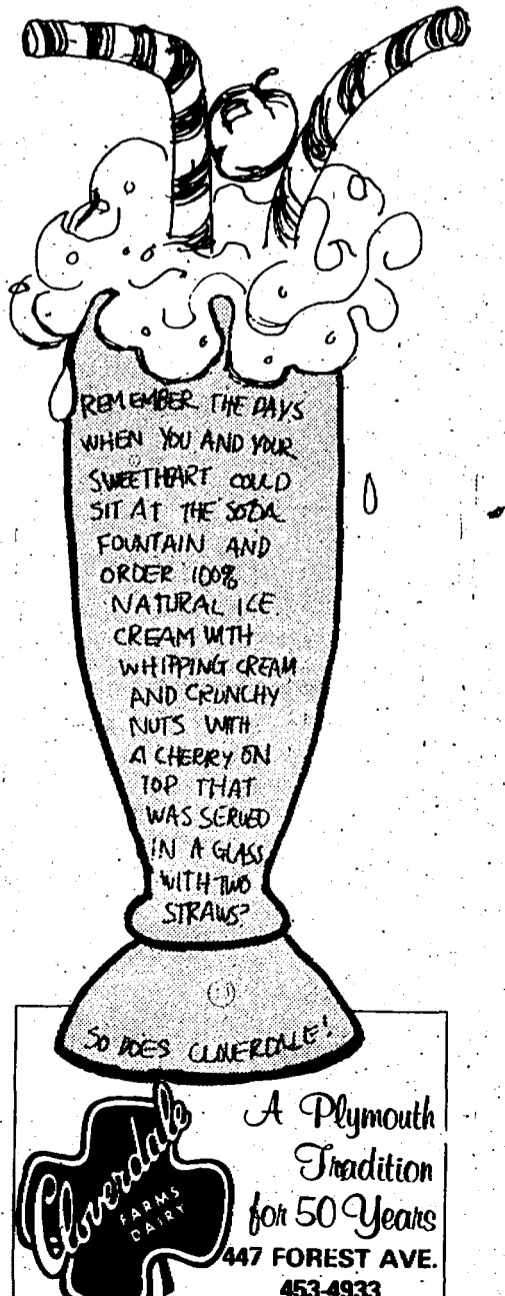 REMEMBER THE DAYS
WHEN YOU AND YOUR
SWEETHEART COULD
SIT AT THE SODA
FOUNTAIN AND
ORDER 100%
NATURAL ICE
CREAM WITH
WHIPPING CREAM
AND CRUNCHY
NUTS WITH
A CHERRY ON
TOP THAT
WAS SERVED
IN A GLASS
WITH TWO
STRAWS?
SO DOES CLOVERDALE!
Cloverdale
FARMS
DAIRY
A Plymouth
Tradition
for 50 Years
447 FOREST AVE.
453-4933